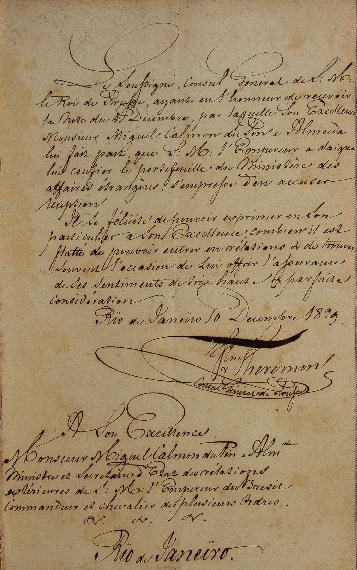 Le Soussigné, Consul Général de S. M.
le Roi de Prusse, ayant eu l'honneur de recevoir
la Note du Décembre, par laquelle Son Excellence
Monsieur Miguel Calmon du Pin e Almeida
lui fait part, que S. M. l'Empereur a daigné
lui confier le portefeuille du Ministère des
affaires étrangères, s'empresse d'en accuser
réception.
Il se félicite de pouvoir exprimer en Son
particulier à Son Excellence, combien il est
flatté de pouvoir entrer en rélations & de trouver
souvent l'occasion de Lui offrir l'assurance
de Ses sentimens de très haute & parfaite
considération.
Rio de Janeiro 10 Decembre 1829.
Theremin
Consul Général de Prusse
A Son Excellence
Monsieur Miguel Calmon du Pin e Alm.da
Ministre et Secrétaire d'Etat des relations
extérieures de S. M. l'Empereur du Brésil
Commandeur et Chevalier de plusieurs Ordres.
&. &. &.
Rio de Janeiro.